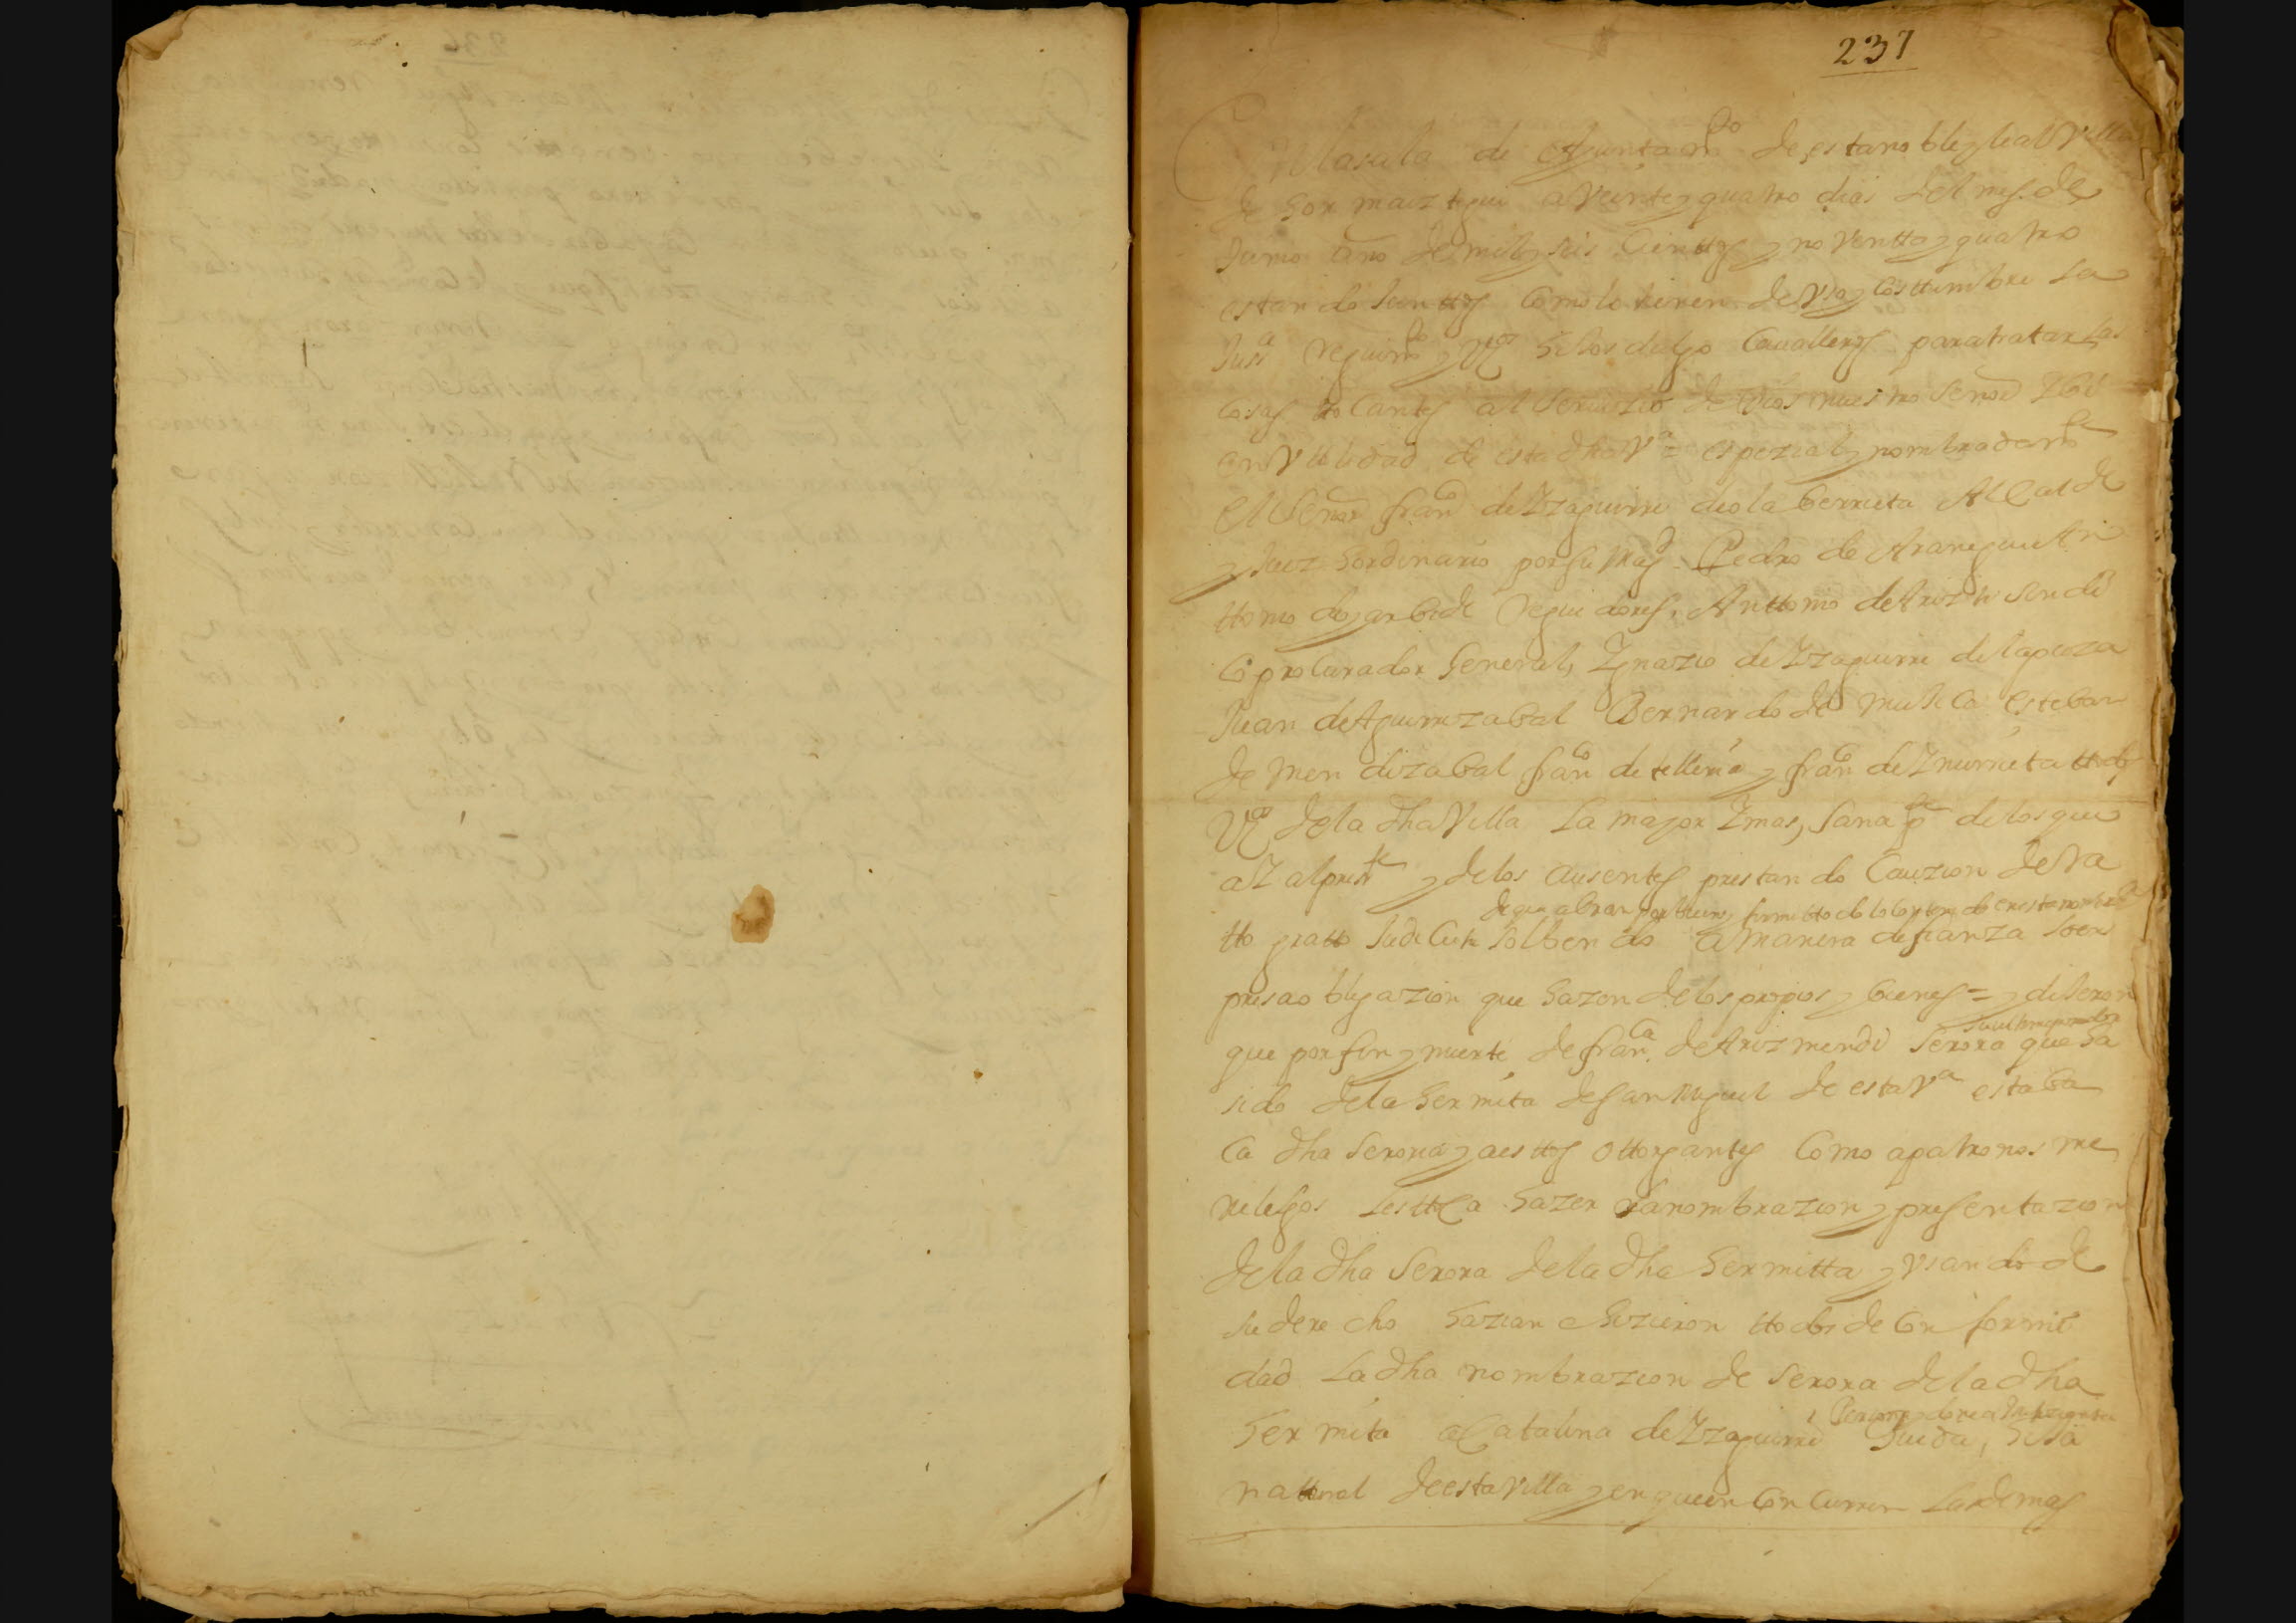 237
En la sala de Ayuntam.to de esta noble y leal Villa
de Hormaiztegui a Veinte y quatro dias del mes de
Junio año de mil y seis Cienttos y noventta y quatro
estando Junttos Como lo tienen de Vso y Costtumbre La
Juss.a reguim.to y Vz.os hijosdalgo Cavalleros para tratar las
Cosas tocantes al seruizio de Dios nuestro señor y bien
y Vtilidad de esta dha V.a espezial y nombradam.te
El Señor fran.co de Yzaguirre de olaberrieta Alcalde
y Juez hordinario por su Mag.d Pedro de Aranegui An
ttonio de garbide Regidores, Anttonio de Arizti sindi
co procurador General, Ygnazio de Yzaguirre de la plaza
Juan de Aguirrezabal Bernardo de Mujica esteban
de Mendizabal fran.co de telleria y fran.co de Ynurrieta ttodos
Vz.os de la dha Villa La mayor Y mas sana p.te de los que
ay al press.te y de los ausentes prestando Cauzion de Ra
de que abran por bueno y firme ttodo lo contenido en esta nombra.on
tto gratto Judicatu solbendo a manera de fianza so ex
presa obligazion que hazen de los propios y bienes = y dijeron
que por fin y muerte de fran.ca de Arizmendi serora que ha
sido de la hermita de san Miguel de esta V.a estaba
la dha seroria y a esttos ottorgantes Como a patronos me
relegos les ttoca hazer la nombrazion y presentazion
de la dha serora de la dha hermitta y Vsando de
su derecho hazian e hizieron ttodos de Conformi
dad La dha nombrazion de serora de la dha
hermita a Catalina de Yzaguirre hija
natteral de esta Villa y en quien Concurren Las demas